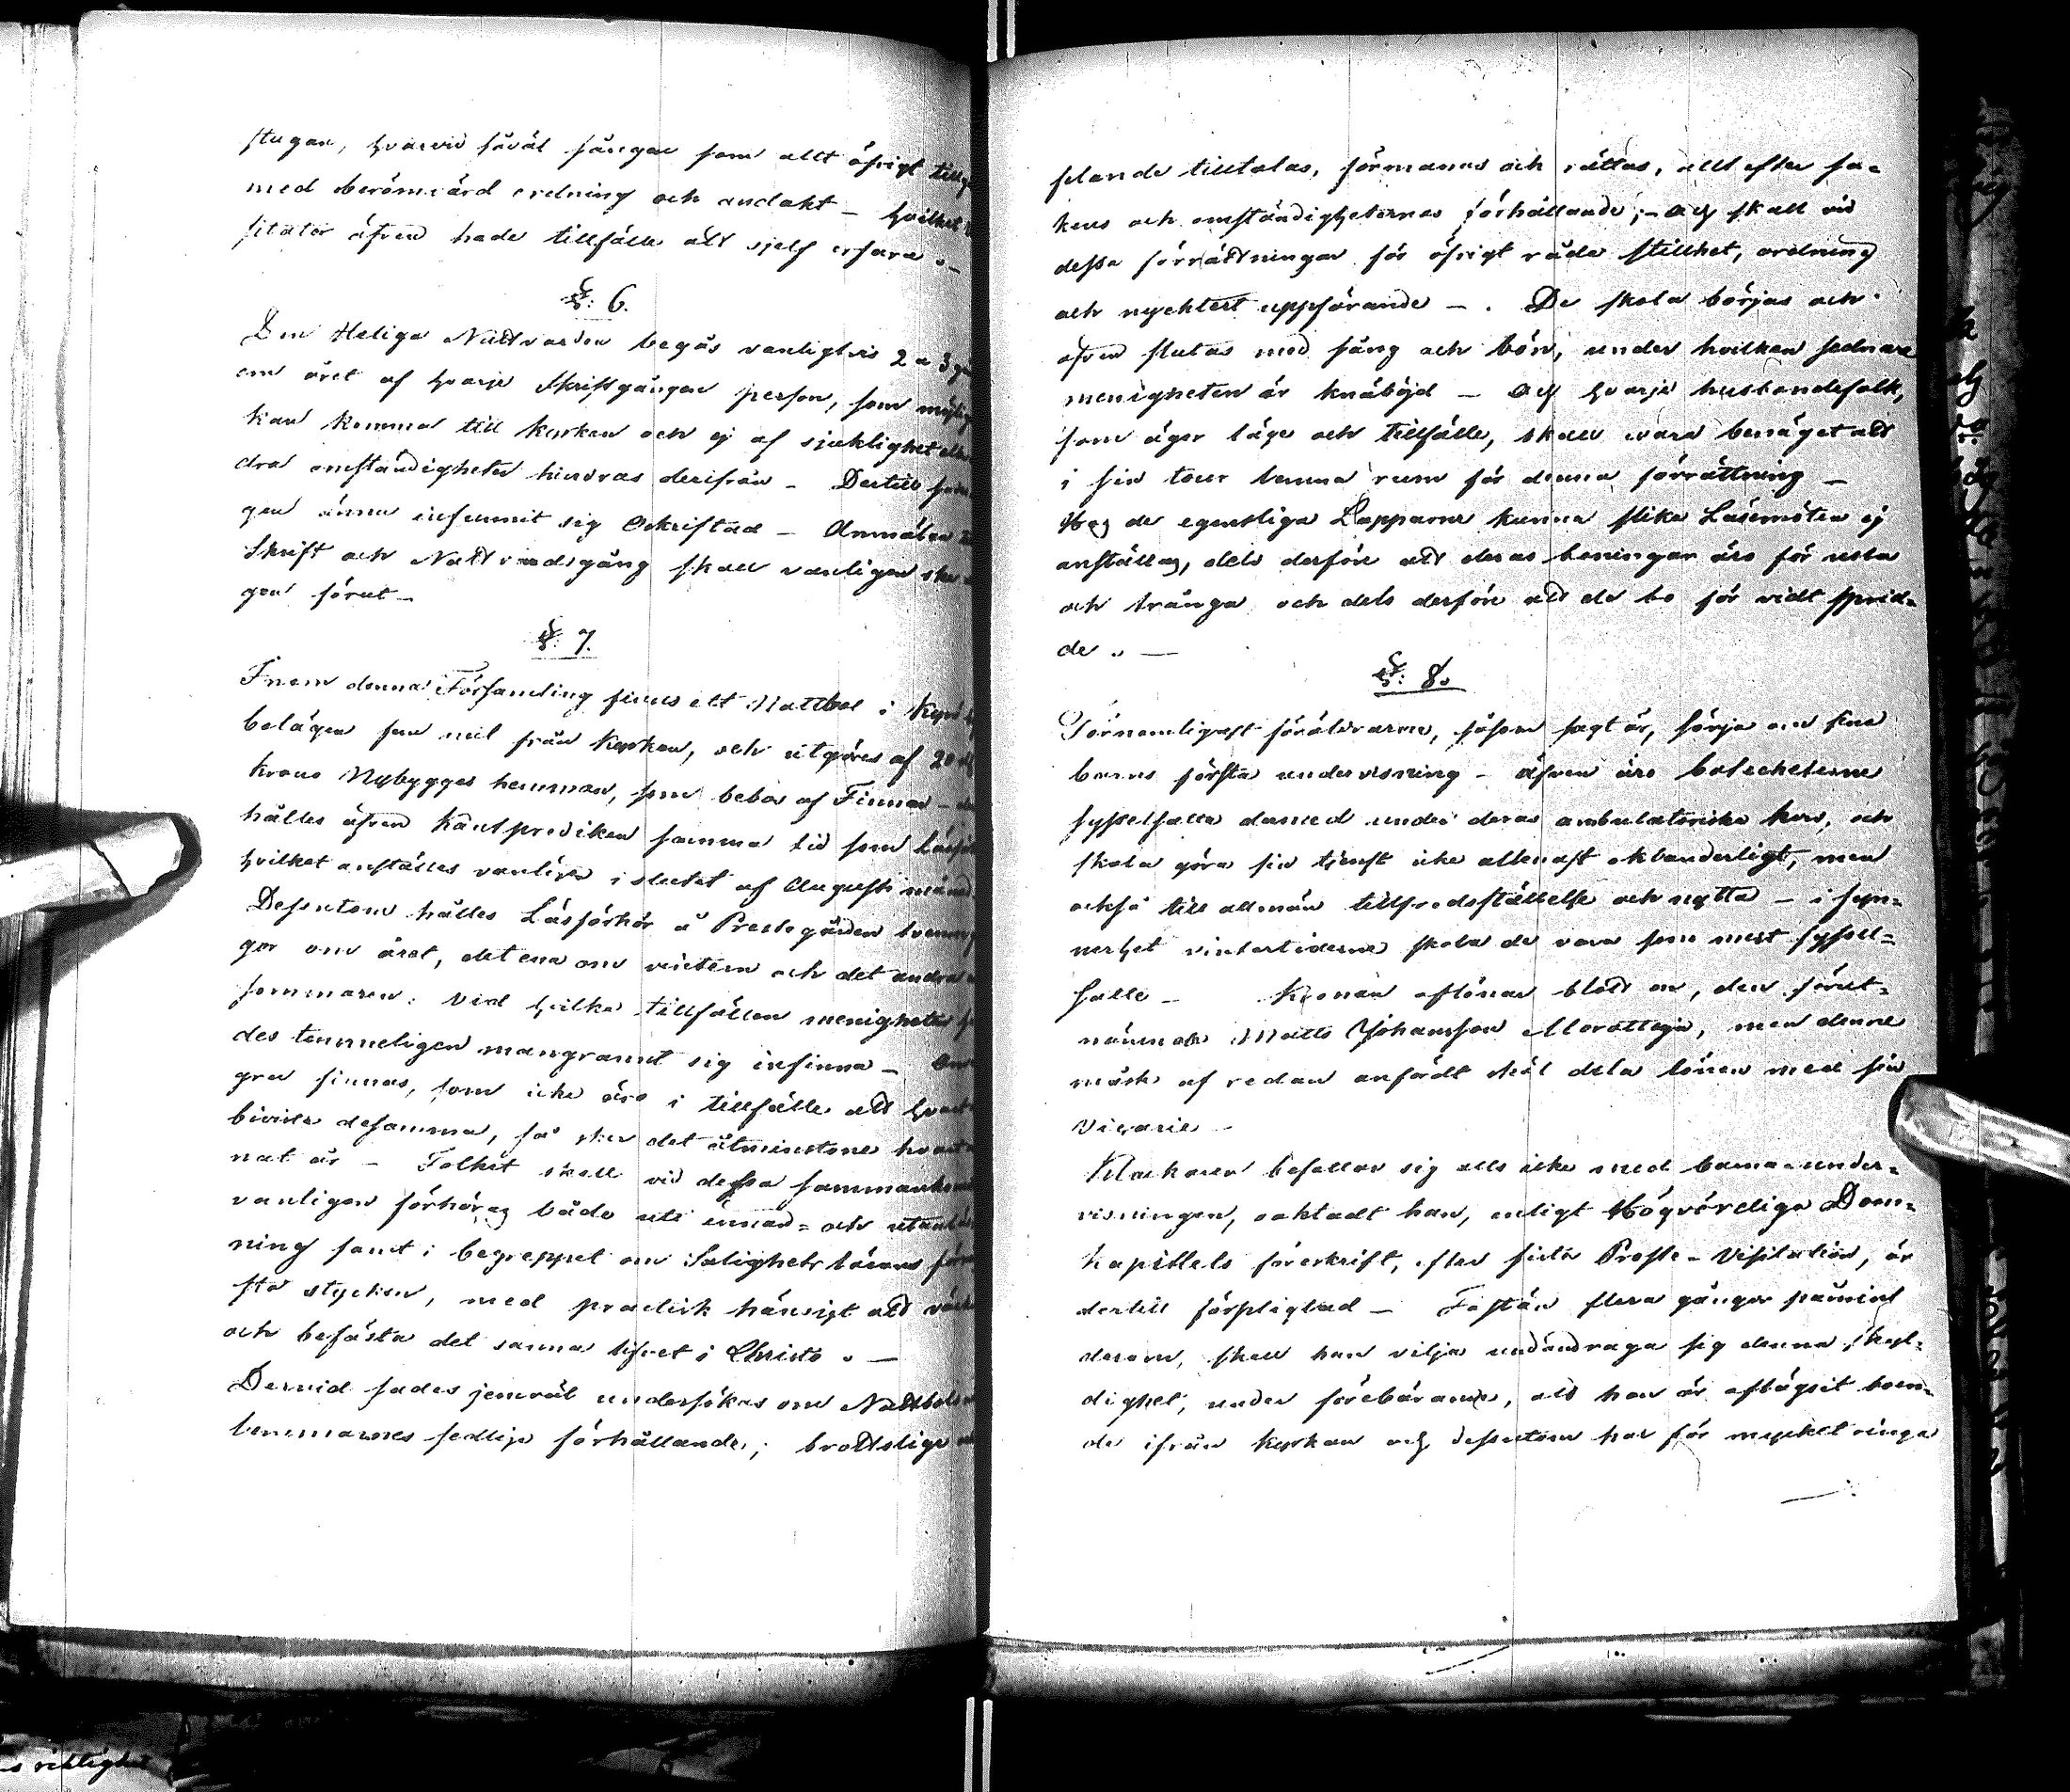 stugan, hvarvid såväl sången som allt öfrigt
med berömvärd ordning och andakt - hvilket
sitator äfven hade tillfälle att sjelf erfara .-
§: 6.
Den Heliga Nattvarden begås vanligtvis 2 a 3
om året af hvarje Skriftgången person, som
kan komma till kyrkan och ej af sjuklighet
dra omständigheter hindras derifrån - Dertill
gen ännu infunnit sig Oskriftad - Anmälan
Skrift och Nattvardsgång skall vanligen ske
gen förut -
§: 7.
Inom denna Församling finns ett Nattbol i
belägen fem mil från kyrkan, och utgöres af 20
Krono Nybygges hemman, som bebos af Finnar -
hålles äfven Kantpredikan samma tid som
hvilket anställes vanligen i slutet af Augusti
Dessutom hålles Läsförhör å Prestegården
gor om året, det ena om vintern och det andra
sommaren: Vid hvilka tillfällen menigheten
des temmeligen mangrannt sig infinna -
gra finnas, som icke äro i tillfälle att
bivista desamma, så sker det åtminstone
nat år - Folket skall vid dessa
vanligen förhöras både uti innan= och
ning samt i begreppet om Salighets lärans
sta stycken, med practisk hänsigt att
och befästa det sanna lifvet i Christo . -
Dervid sades jemväl undersökas om
bemmarnes sedliga förhållande; brottslige
plande tilltalas, förmanas och rättas, allt efter sa=
kens och omständigheternas förhållande; - Och skall vid
dessa förrättningar för öfrigt råda stillhet, ordning
och nycktert uppförande - . De skola börjas och
äfven slutas med sång och bön, under hvilken sednare
menigheten är knäböjd - Och hvarje husbondefolk,
som äger läge och tillfälle, skall vara benäget att
i sin tour lemna rum för denna förrättning -
Hos de egentliga Lapparne kunna slika Läsemöten ej
anställas, dels derföre att deras boningar äro för usla
och trånga och dels derföre att de bo för vidt sprid=
de . -
§: 8.
Förnemligast föräldrarne, såsom sagt är, sörja om sina
barns första undervisning - äfven äro Catecheterne
sysselsatta dermed under deras ambulatoriska kurs, och
skola göra sin tjenst icke allenast oklanderligt, men
också till allmän tillfredsställelse och nytta - i syn=
nerhet vintertiderne skola de vara som mest syssel=
satte - Kronan aflönar blott en, den förut=
nämnde Matts Johansson Morottaja, men denne
måste af redan anfördt skäl dela lönen med sin
Vicarie -
Klockaren befattar sig alls icke med barna-under=
visningen, oaktadt han, enligt Högvördiga Dom=
kapitlets föreskrift, efter sista Prosste-Visitation, är
dertill förpligtad - Fastän flera gånger påmint
derom, skall han vilja undandraga sig denna skyl=
dighet, under förebärande, att han är aflägsit boen=
de ifrån kyrkan och dessutom har för mycket ringa